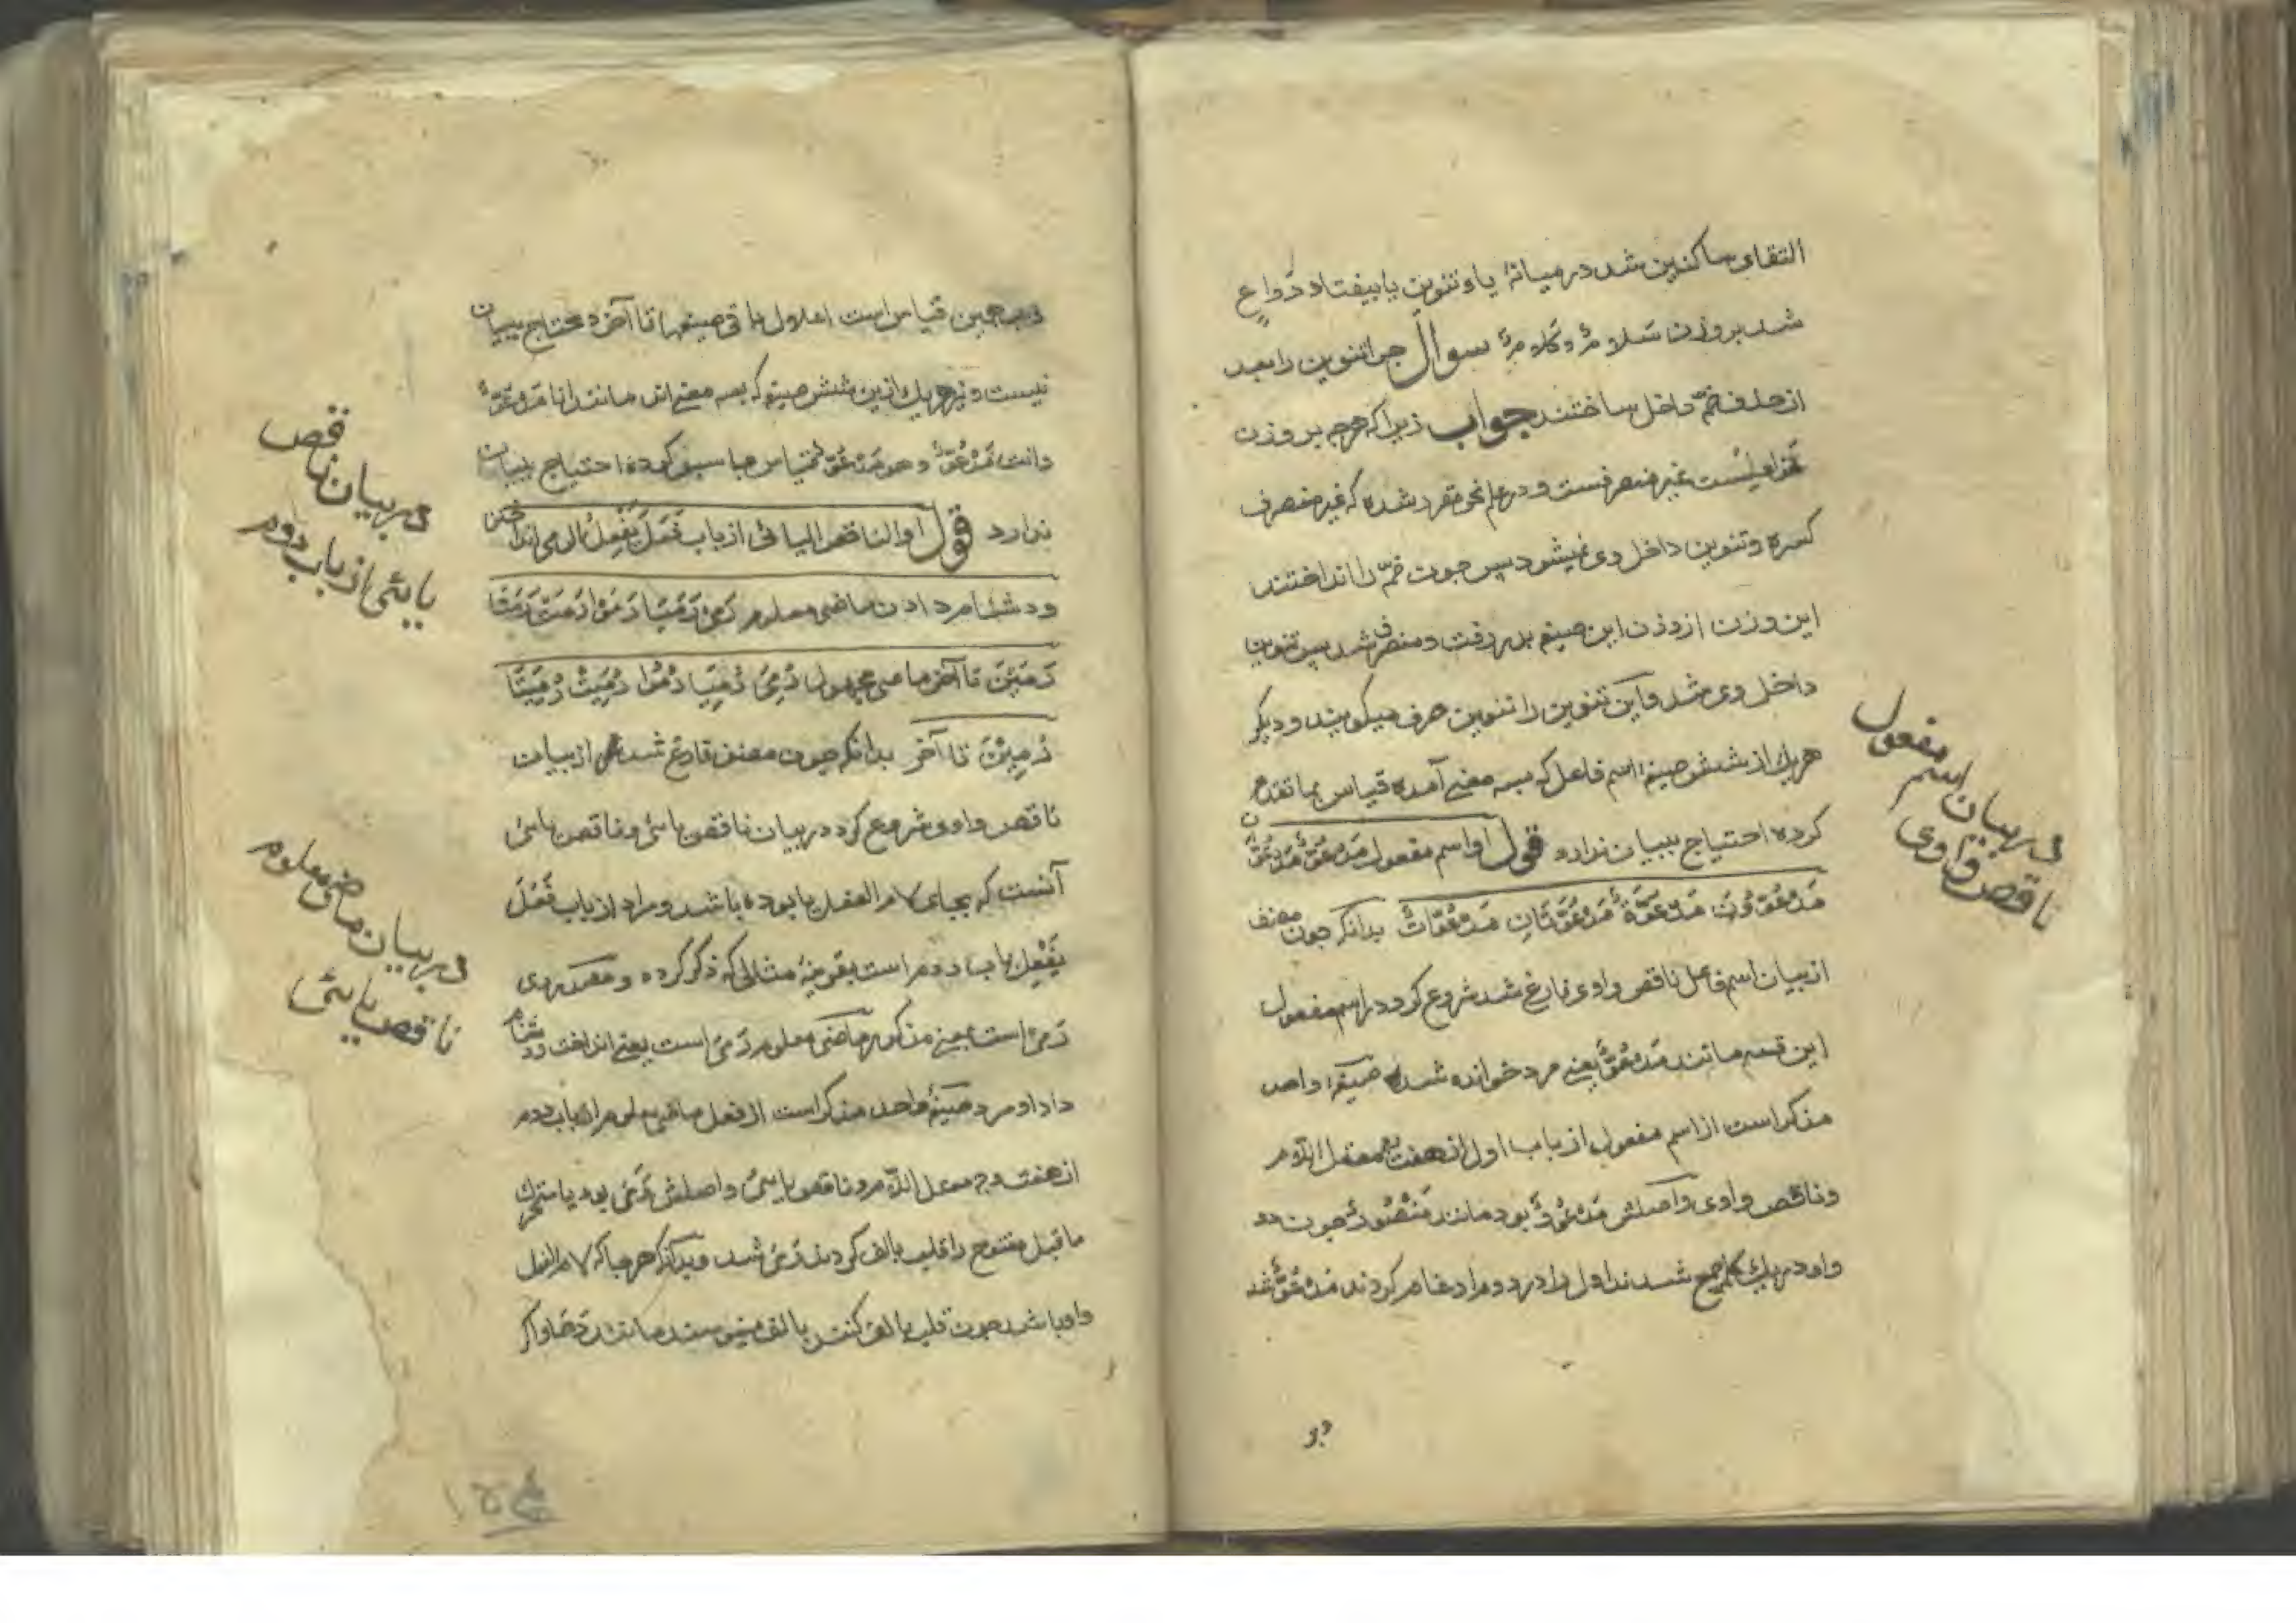 التقای ساکنین شد در میانهٔ یا و تنوین یا بیفتاد دَوَاعٍ
شد بر وزن سَلَامٌ وکَلَامٌ سوال چرا تنوین را بعد
از حذف ضمّه داخل ساختند جواب زیرا که هرچه بر وزن
غیر منصرفست و در علم نحو مقرر شده که غیر منصرف
کسره و تنوین داخل وی نمیشود پس چون ضمّه را انداختند
این وزن از وزن این صیغه بدر رفت و منصرف شد پس تنوین
داخل وی شد و این تنوین را تنوین صرف میگویند و دیگر
هر یک از شش صیغهٔ اسم فاعل که بسه معنی آمده قیاس بما تقدم
کرده احتیاج ببیان ندارد قول او اسم مفعول مَدْعُوٌّ مَدْعُوَّانِ
مَدْعُوُّونَ مَدْعُوَّةٌ مَدْعُوَّتَانِ مَدْعُوَّاتٌ بدانکه چون مصنف
از بیان اسم فاعل ناقص واوی فارغ شد شروع کرد در اسم مفعول
این قسم مانند مَدْعُوٌّ یعنی مرد خوانده شده صیغهٔ واحد
مذکر است از اسم مفعول از باب اول از هفت وجه معتل اللّام
و ناقص واوی و اصلش مَدْعُووٌ بود مانند مَنْصُورٌ چون دو
واو در یک کلمه جمع شدند اول را در دوم ادغام کردند مَدْعُوٌّ شد
در بیان اسم مفعول
ناقص واوی
و بر همین قیاس است اعلال باقی صیغها تا آخر و محتاج ببیان
نیست و نیز هر یک ازین شش صیغه که بسه معنی اند مانند انا مَدْعُوٌّ
و انت مَدْعُوٌّ و هو مَدْعُوٌّ قیاس بما سبق کرده احتیاج ببیان
ندارد قول او الناقص الیائی از باب فَعَلَ یَفْعِلُ الرمی انداختن
و دشنام دادن ماضی معلوم رَمَیٰ رَمَیَا رَمَوْا رَمَتْ رَمَتَا
رَمَیْنَ تا آخر ماضی مجهول رُمِیَ رُمِیَا رُمُوا رُمِیَتْ رُمِیَتَا
رُمِیْنَ تا آخر بدانکه چون مصنف فارغ شد از بیان
ناقص واوی شروع کرد در بیان ناقص یائی و ناقص یائی
آنست که بجای لام الفعل یا بوده باشد و مراد از باب فَعَلَ
یَفْعِلُ باب دوم است بقرینهٔ مثالی که ذکر کرده و مصدر وی
رَمْی است بمعنی مذکور ماضی معلوم رَمَیٰ است یعنی انداخت و دشنام
داد او مرد صیغهٔ واحد مذکر است از فعل ماضی معلوم از باب دوم
از هفت وجه معتل اللّام و ناقص یائی و اصلش رَمَیَ بود یا متحرک
ماقبل مفتوح را قلب بالف کردند رَمَیٰ شد و بدانکه هر جا که لام الفعل
واو باشد چون قلب بالف کنند بالف مینویسند مانند دَعَا و اگر
در بیان ناقص
یائی از باب دوم
در بیان ماضی معلوم
ناقص یائی